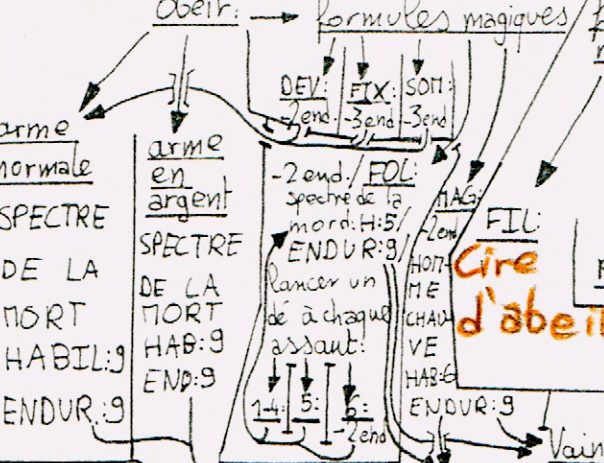 Obéir: → formules magiques
DEV: FIX: SOM:
-2end. -3end -3end
arme
normale
SPECTRE
DE LA
MORT
HABIL:9
ENDUR.:9
arme
en
argent
SPECTRE
DE LA
MORT
HAB:9
END:9
-2end./FOL:
spectre de la
mord:H:5/
ENDUR:9/
lancer un
dé à chaque
assaut:
1-4: 5: 6:
-2end
MAG:
-2end
HOM-
ME
CHAU
VE
HAB:6
ENDUR:9
FIL:
Cire
d'abeil
Vain